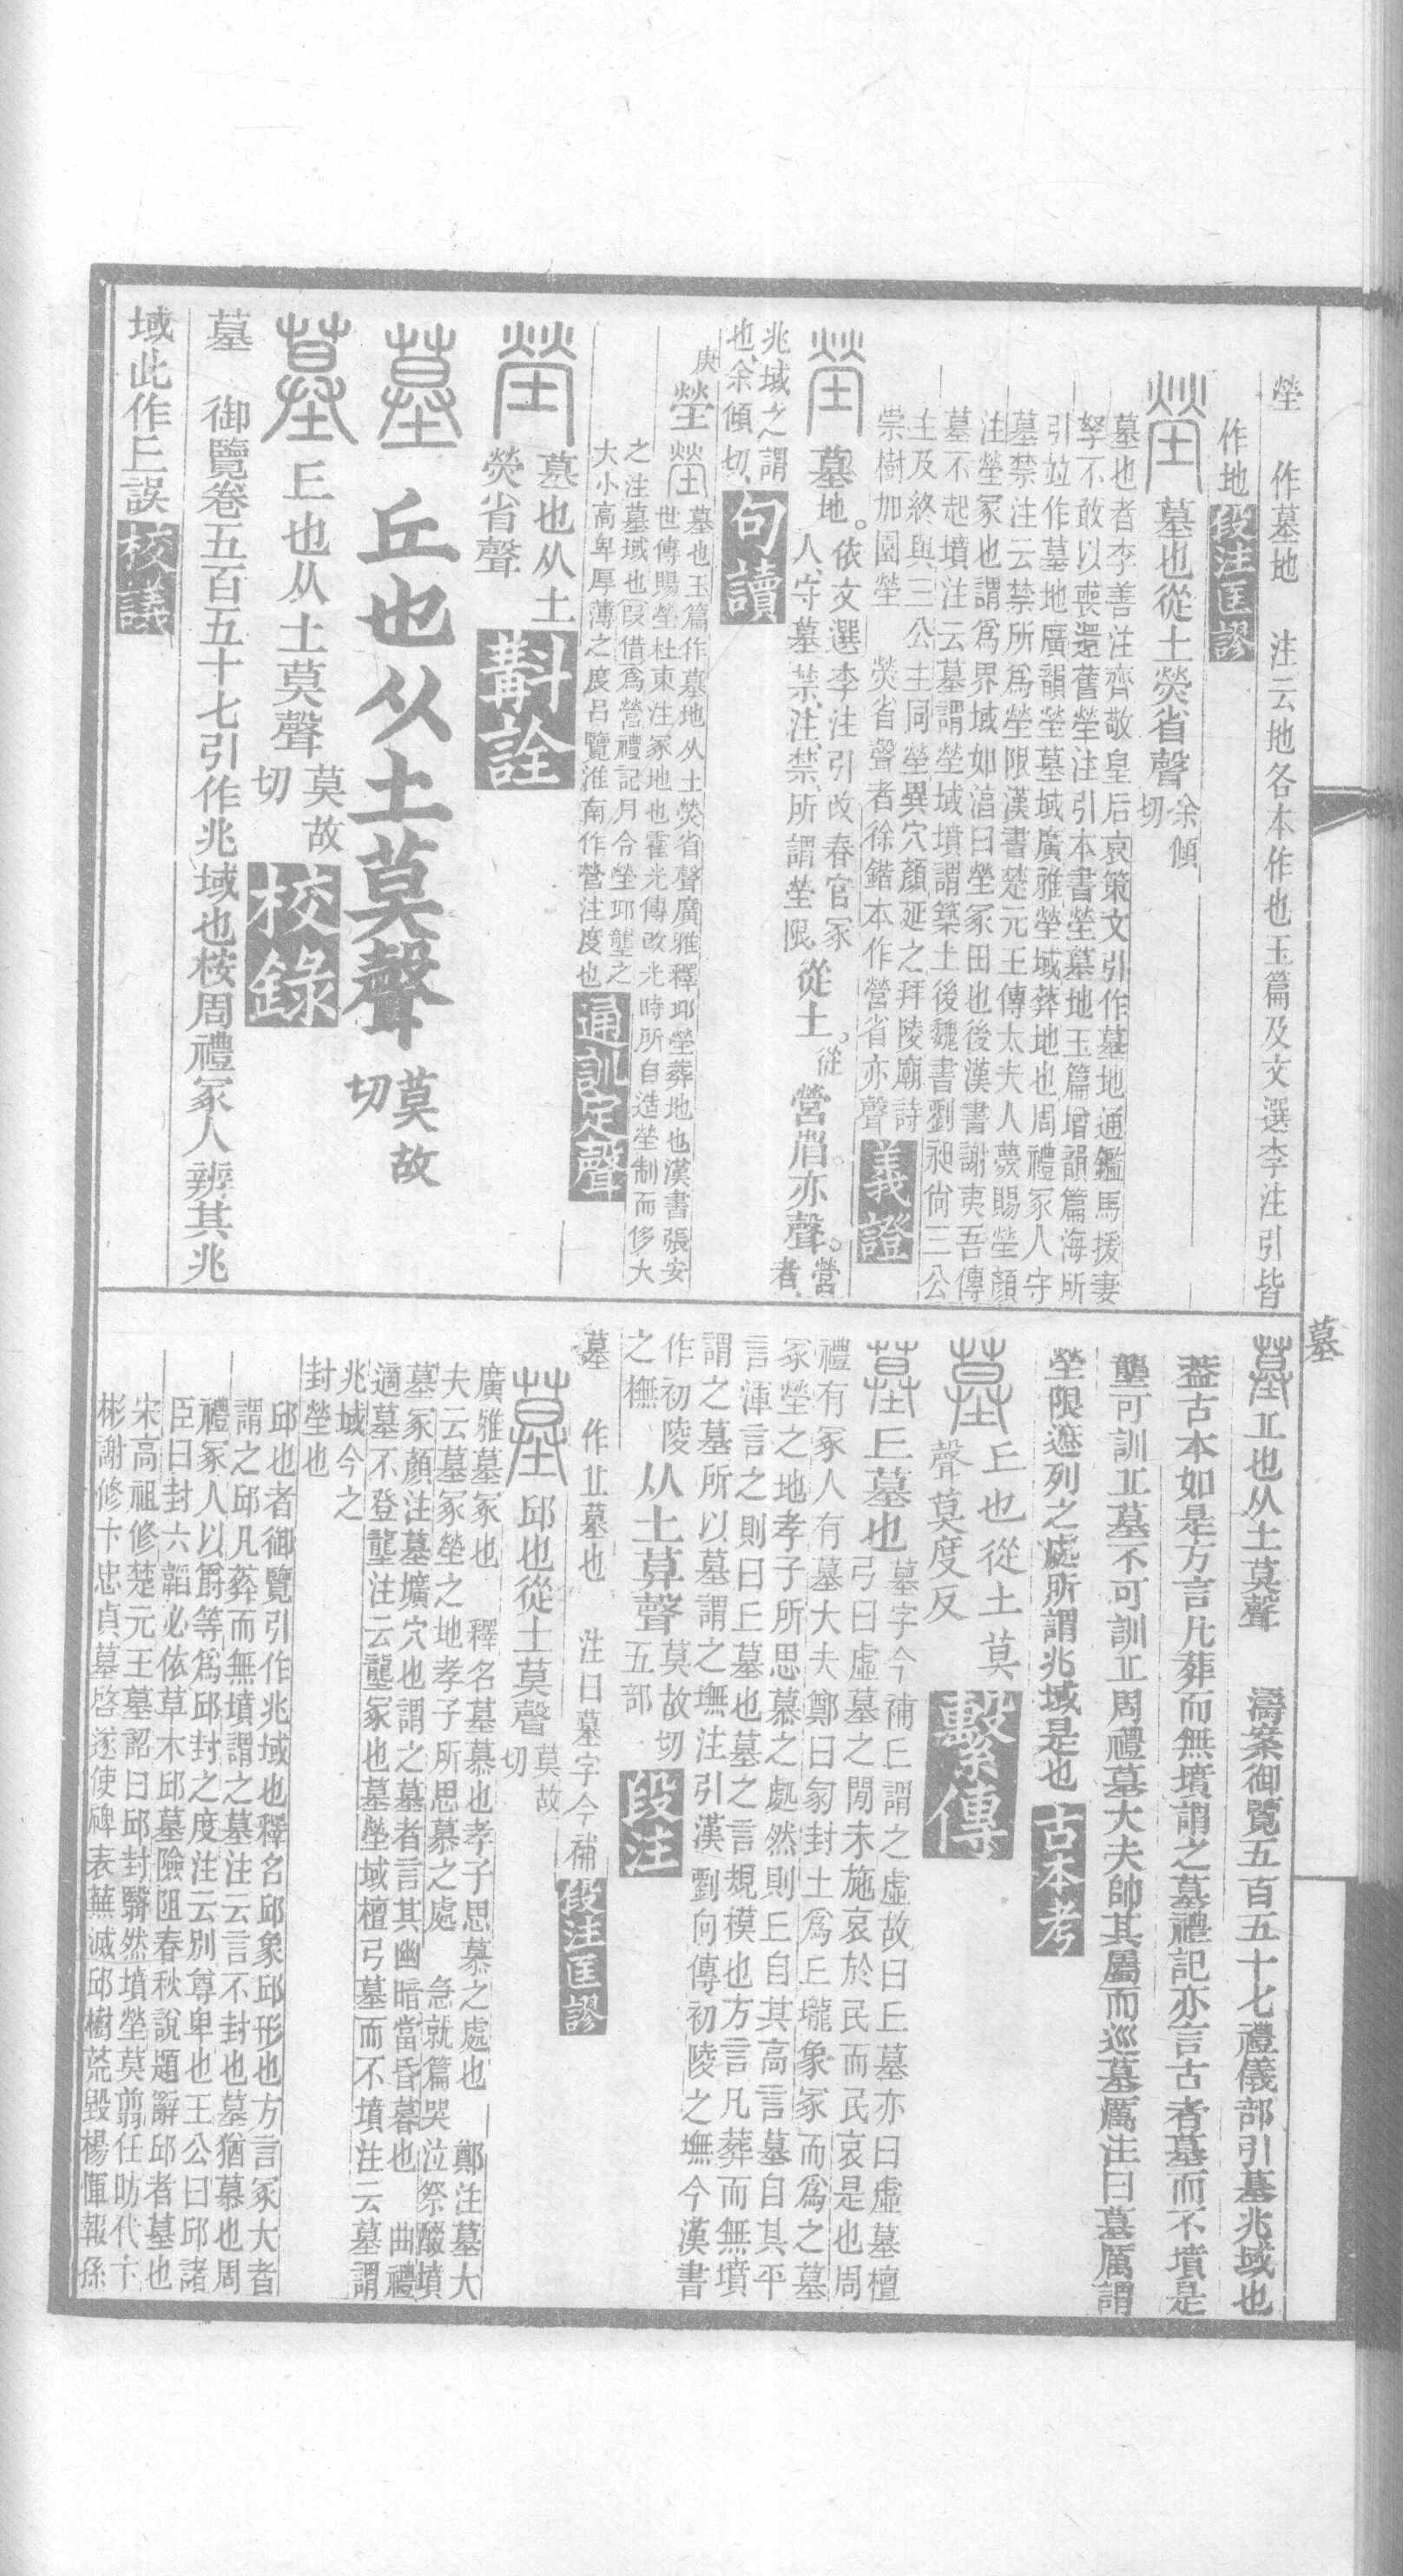 塋　作墓地　注云地各本作也玉篇及文選李注引皆
作地段注匡謬
塋墓也從土熒省聲余傾切
墓也者李善注齊敬皇后哀策文引作墓地通鑑馬援妻
孥不敢以喪還舊塋注引本書塋墓地玉篇增韻篇海所
引竝作墓地廣韻塋墓域廣雅塋域葬地也周禮冢人守
墓禁注云禁所為塋限漢書楚元王傳太夫人薨賜塋顏
注塋冢也謂為界域如淳曰塋冢田也後漢書謝夷吾傳
墓不起墳注云墓謂塋域墳謂築土後魏書劉昶尙三公
主及終與三公主同塋異穴顏延之拜陵廟詩
崇樹加園塋　熒省聲者徐鍇本作營省亦聲義證
塋墓地。依文選李注引改春官冢
人守墓禁注禁所謂塋限從土。從營省。亦聲。營者
兆域之謂
也余傾切句讀
庚塋塋墓也玉篇作墓地从土熒省聲廣雅釋邱塋葬地也漢書張安
世傳賜塋杜東注冢地也霍光傳改光時所自造塋制而侈大
之注墓域也叚借為營禮記月令塋邱壟之
大小高卑厚薄之度呂覽淮南作營注度也通訓定聲
塋墓也从土
熒省聲斠詮
墓丘也从土莫聲莫故切
墓丘也从土莫聲莫故切校錄
墓　御覽卷五百五十七引作兆域也桉周禮冢人辨其兆
域此作丘誤校議
墓
墓丠也从土莫聲　濤案御覽五百五十七禮儀部引墓兆域也
葢古本如是方言凡葬而無墳謂之墓禮記亦言古者墓而不墳是
壟可訓丠墓不可訓丠周禮墓大夫帥其屬而巡墓厲注曰墓厲謂
塋限遮列之處所謂兆域是也古本考
墓丘也從土莫
聲莫度反繫傳
墓丘墓也墓字今補丘謂之虛故曰丘墓亦曰虛墓檀
弓曰虛墓之閒未施哀於民而民哀是也周
禮有冢人有墓大夫鄭曰冢封土爲丘壠象冢而爲之墓
冢塋之地孝子所思慕之處然則丘自其高言墓自其平
言渾言之則曰丘墓也墓之言規模也方言凡葬而無墳
謂之墓所以墓謂之墲注引漢劉向傳初陵之墲今漢書
作初陵从土莫聲莫故切
之橅五部段注
墓　作丠墓也　注曰墓字今補段注匡謬
墓邱也從土莫聲莫故切
廣雅墓冢也　釋名墓慕也孝子思慕之處也　鄭注墓大
夫云墓冢塋之地孝子所思慕之處　急就篇哭泣祭醊墳
墓冢顏注墓壙穴也謂之墓者言其幽暗當昏暮也　曲禮
適墓不登壟注云壟冢也墓塋域檀弓墓而不墳注云墓謂
兆域今之
封塋也
邱也者御覽引作兆域也釋名邱象邱形也方言冢大者
謂之邱凡葬而無墳謂之墓注云言不封也墓猶慕也周
禮冢人以爵等為邱封之度注云別尊卑也王公曰邱諸
臣曰封六韜必依草木邱墓險阻春秋說題辭邱者墓也
宋高祖修楚元王墓詔曰邱封翳然墳塋莫翦任昉代卞
彬謝修卞忠貞墓啓遂使碑表蕪滅邱樹荒毀楊惲報孫